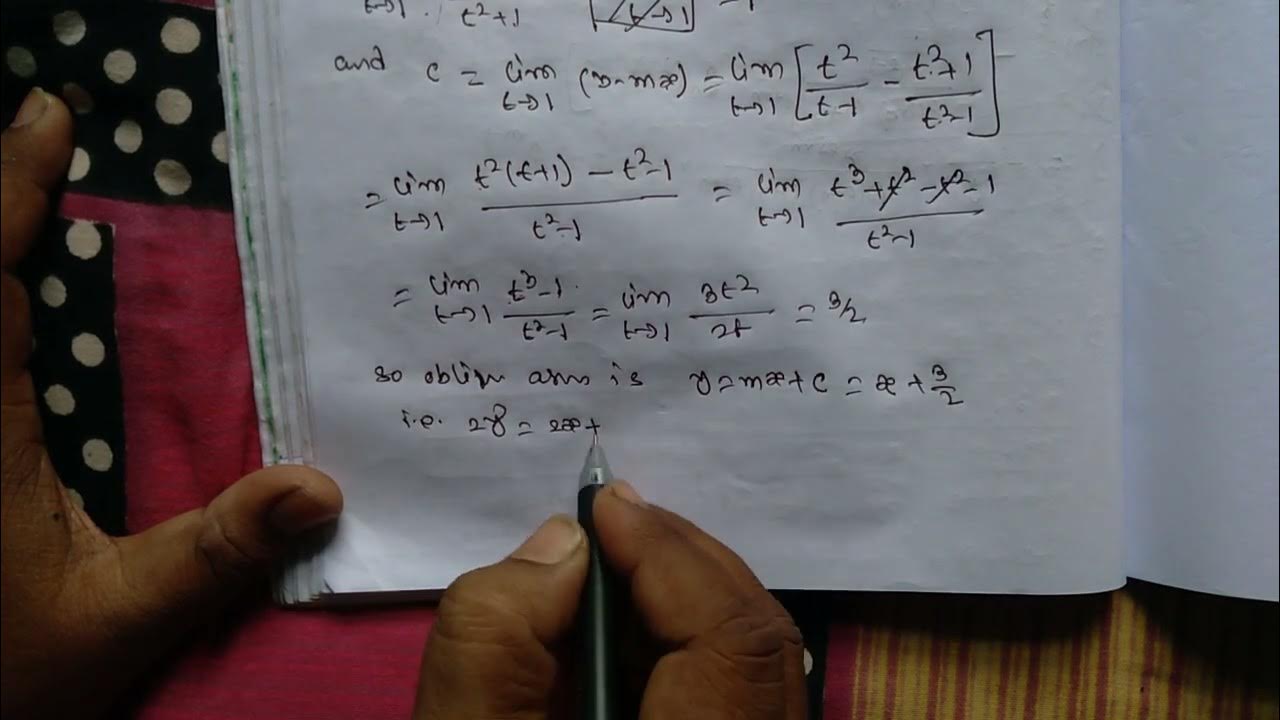 t→1 . t²+1 [t→1] = 1
and c = lim t→1 (y-mx) = lim t→1 [t²/t-1 - t²+1/t²-1]
= lim t→1 t²(t+1) - t²-1/t²-1 = lim t→1 t³+t²-t²-1/t²-1
= lim t→1 t³-1/t²-1 = lim t→1 3t²/2t = 3/2
so is y=mx+c = x+3/2
i.e. 2y = 2x+